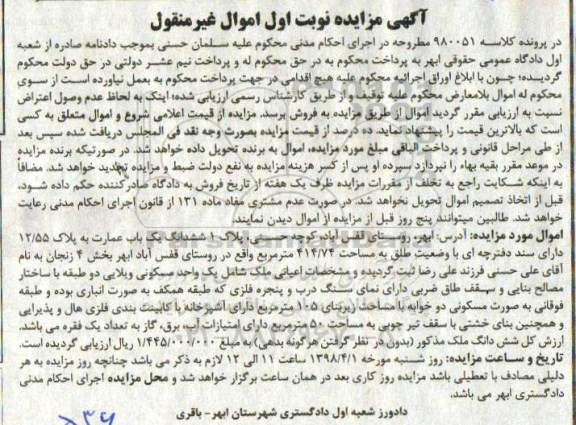 آگهی مزایده نوبت اول اموال غیرمنقول
در پرونده کلاسه ۹۸۰۰۵۱ مطروحه در اجرای احکام مدنی محکوم علیه سلمان حسنی بموجب دادنامه صادره از شعبه
اول دادگاه عمومی حقوقی ابهر به پرداخت محکوم به در حق محکوم له و پرداخت نیم عشر دولتی در حق دولت محکوم
گردیده؛ چون با ابلاغ اوراق اجرائیه محکوم علیه هیچ اقدامی در جهت پرداخت محکوم به بعمل نیاورده است از سوی
محکوم له اموال بلامعارض محکوم علیه توقیف و از طریق کارشناس رسمی ارزیابی شده؛ اینک به لحاظ عدم وصول اعتراض
نسبت به ارزیابی مقرر گردید اموال از طریق مزایده به فروش برسد. مزایده از قیمت اعلامی شروع و اموال متعلق به کسی
است که بالاترین قیمت را پیشنهاد نماید. ده درصد از قیمت مزایده بصورت وجه نقد فی المجلس دریافت شده سپس بعد
از طی مراحل قانونی و پرداخت الباقی مبلغ مورد مزایده، اموال به برنده تحویل داده خواهد شد. در صورتیکه برنده مزایده
در موعد مقرر بقیه بهاء را نپردازد سپرده او پس از کسر هزینه مزایده به نفع دولت ضبط و مزایده تجدید خواهد شد. مضافاً
به اینکه شکایت راجع به تخلف از مقررات مزایده ظرف یک هفته از تاریخ فروش به دادگاه صادرکننده حکم داده شود،
قبل از اتخاذ تصمیم اموال تحویل نخواهد شد. در صورت عدم مشتری مفاد ماده ۱۳۱ از قانون اجرای احکام مدنی رعایت
خواهد شد. طالبین میتوانند پنج روز قبل از مزایده از اموال دیدن نمایند.
اموال مورد مزایده: آدرس: ابهر، روستای قفس آباد، کوچه حسنی، پلاک ۱ ششدانگ یک باب عمارت به پلاک ۱۲/۵۵
دارای سند دفترچه ای با وضعیت طلق به مساحت ۴۱۴/۷۴ مترمربع واقع در روستای قفس آباد ابهر بخش ۴ زنجان به نام
آقای علی حسنی فرزند علی رضا ثبت گردیده و مشخصات اعیانی ملک شامل یک واحد مسکونی ویلایی دو طبقه با ساختار
مصالح بنایی و سقف طاق ضربی دارای نمای سنگ درب و پنجره فلزی که طبقه همکف به صورت انباری بوده و طبقه
فوقانی به صورت مسکونی دو خوابه با مساحت زیربنای ۱۰۵ مترمربع دارای آشپزخانه با کابینت بندی فلزی هال و پذیرایی
و همچنین بنای خشتی با سقف تیر چوبی به مساحت ۵۰ مترمربع دارای امتیازات آب، برق، گاز به تعداد یک فقره می باشد.
ارزش کل شش دانگ ملک مذکور (بدون در نظر گرفتن هرگونه بدهی) به مبلغ ۱/۴۴۵/۰۰۰/۰۰۰ ریال ارزیابی گردیده است.
تاریخ و ساعت مزایده: روز شنبه مورخه ۱۳۹۸/۴/۱ ساعت ۱۱ الی ۱۲ لازم به ذکر می باشد چنانچه روز مزایده به هر
دلیلی مصادف با تعطیلی باشد مزایده روز کاری بعد در همان ساعت برگزار خواهد شد و محل مزایده اجرای احکام مدنی
دادگستری ابهر می باشد.
دادورز شعبه اول دادگستری شهرستان ابهر- باقری